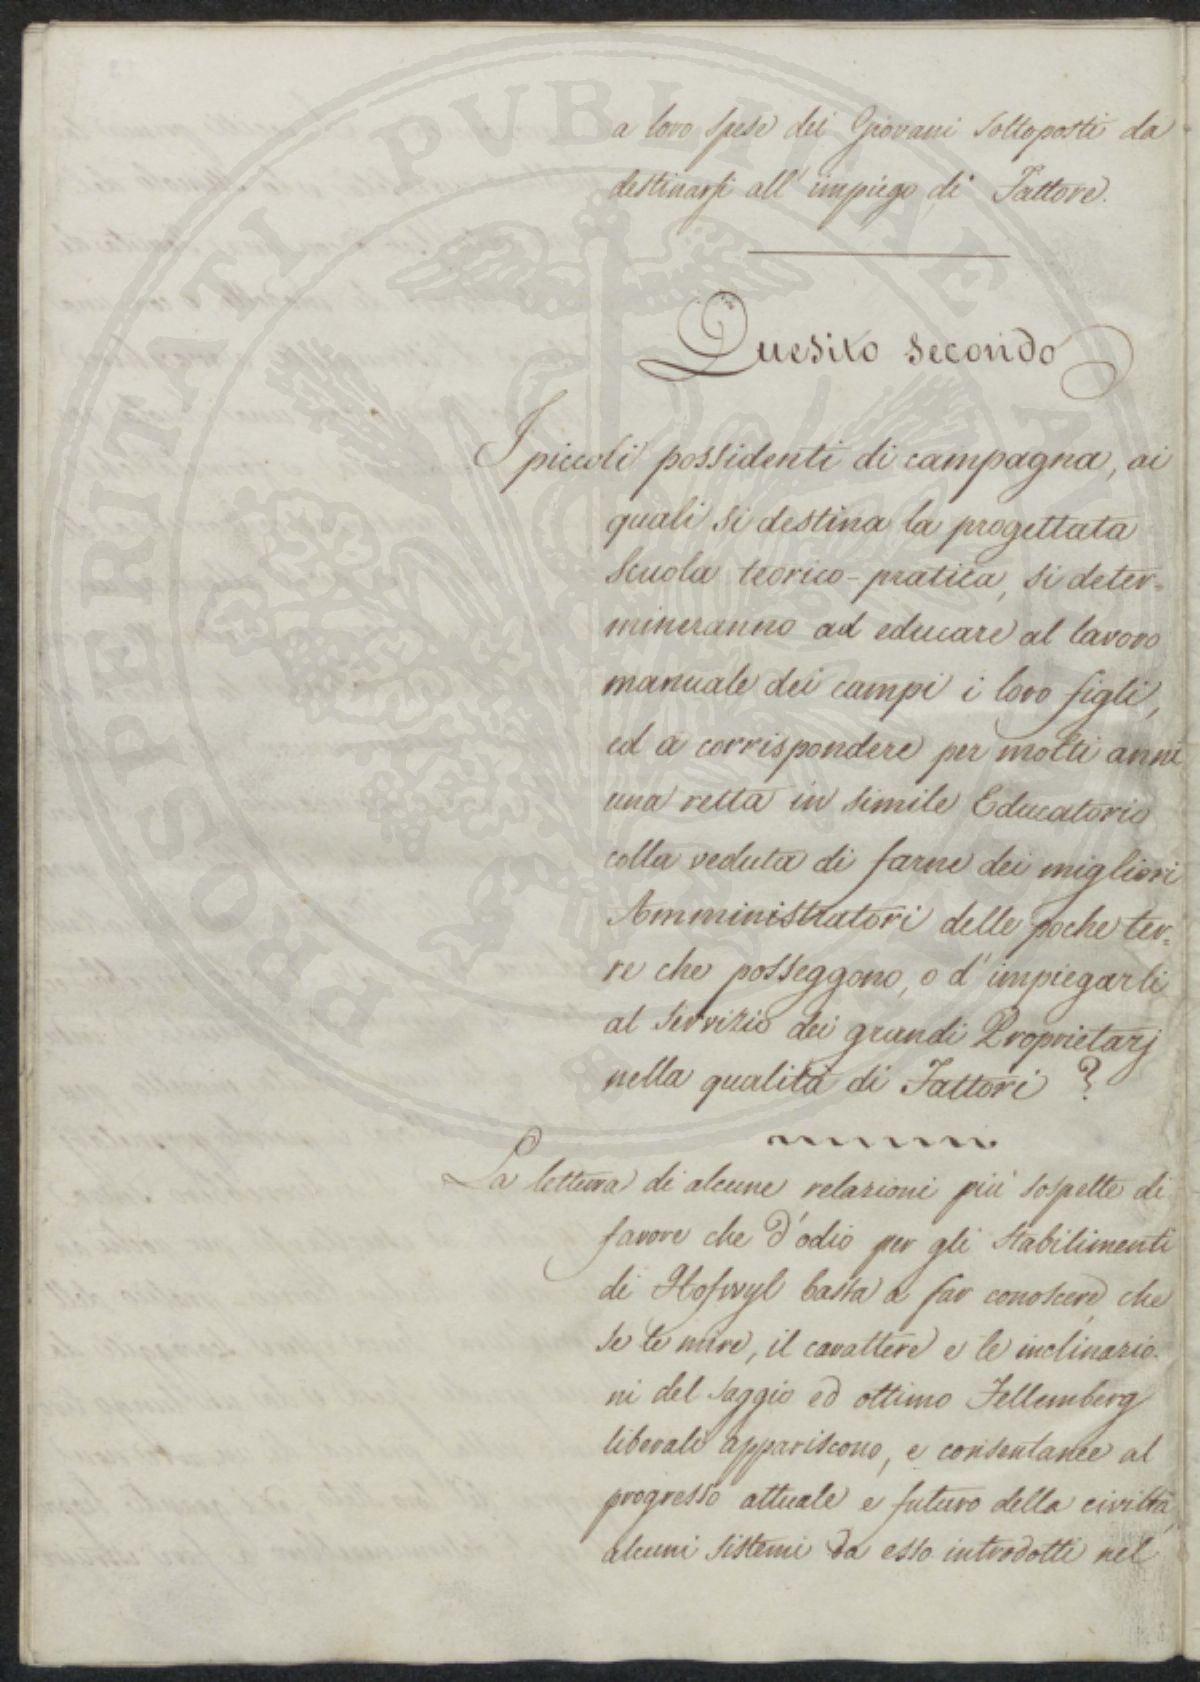 a loro spese dei Giovani sottoposti da
destinarsi all' impiego di Fattore.
Quesito secondo
I piccoli possidenti di campagna, ai
quali si destina la progettata
Scuola teorico-pratica, si deter-
mineranno ad educare al lavoro
manuale dei campi i loro figli,
ed a corrispondere per molti anni
una retta in simile Educatorio
colla veduta di farne dei migliori
Amministratori delle poche ter-
re che posseggono, o d' impiegarli
al servizio dei grandi Proprietarj
nella qualità di Fattori?
La lettura di alcune relazioni più sospette di
favore che d'odio per gli stabilimenti
di Hofwyl basta a far conoscere, che
se le mire, il carattere e le inclinazio-
ni del saggio ed ottimo Fellemberg
liberali appariscono, e consentanee al
progresso attuale e futuro della civiltà,
alcuni sistemi da esso introdotti nel
PROSPERITATI PVBLICAE